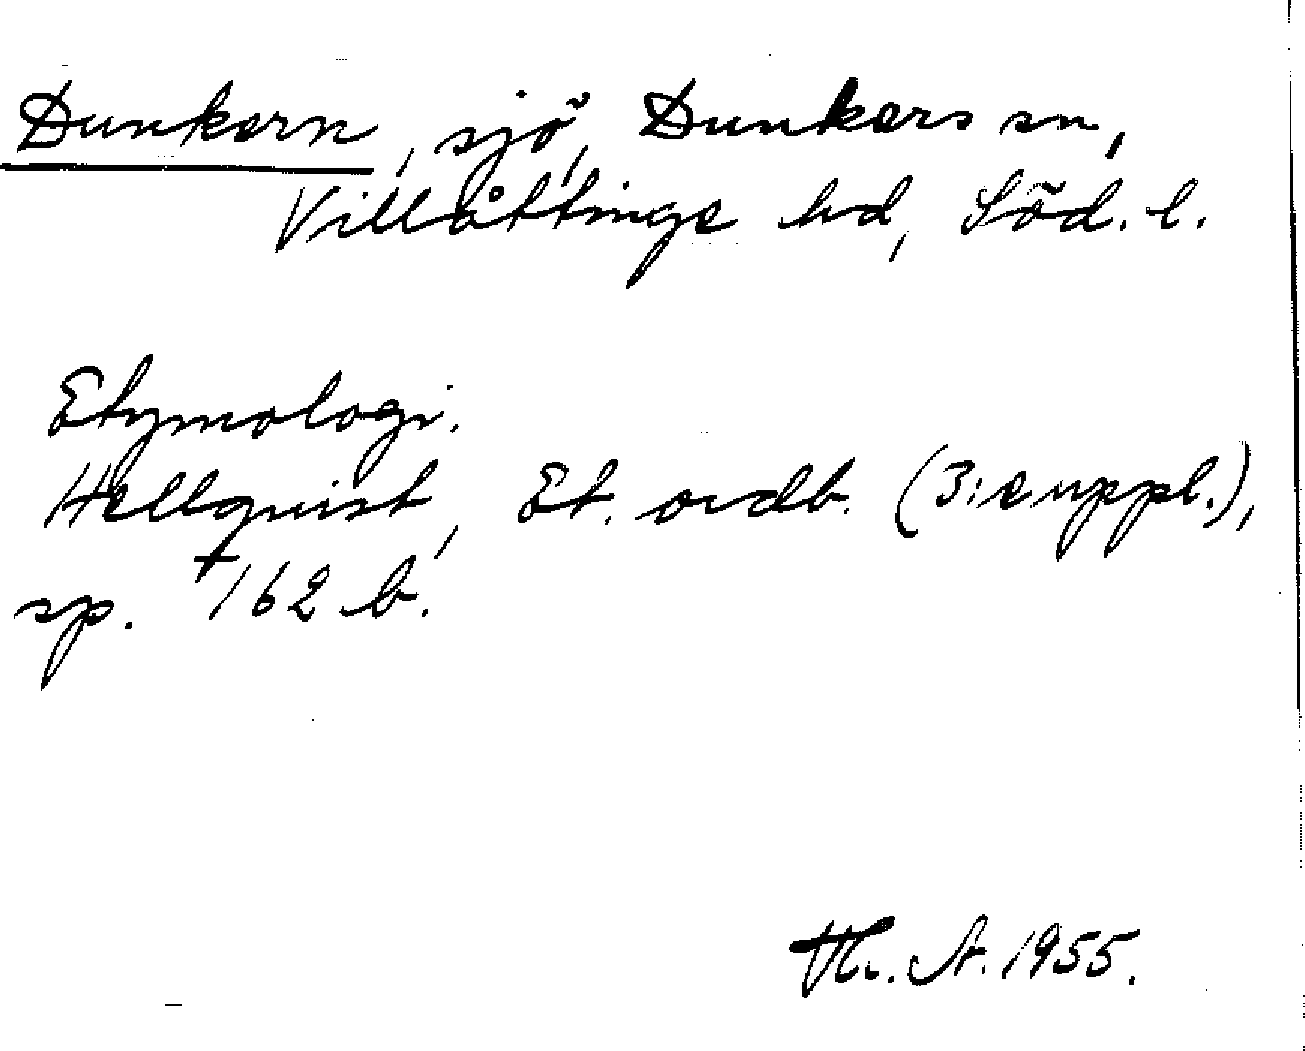 Dunkern, sjö, Dunkers sn,
Villåttinge hd, Söd. l.
Etymologi.
Hellquist, Et. ordb. (3: e uppl.),
sp. 162 b.
Th. A. 1955.